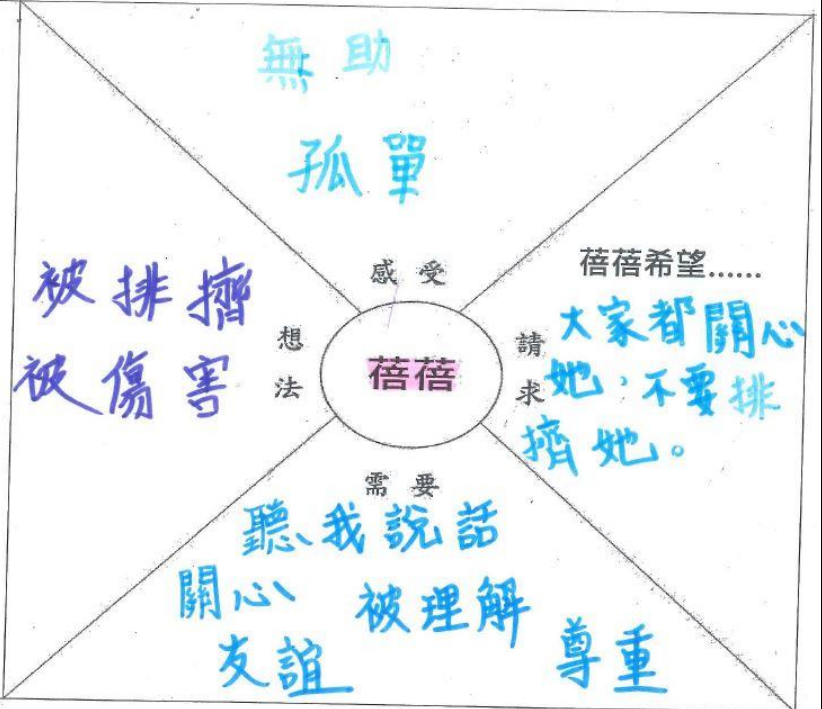 無助
孤單
感受
被排擠
被傷害
想法
蓓蓓
蓓蓓希望......
請求
大家都關心
她，不要排
擠她。
需要
聽我說話
關心
被理解
友誼
尊重